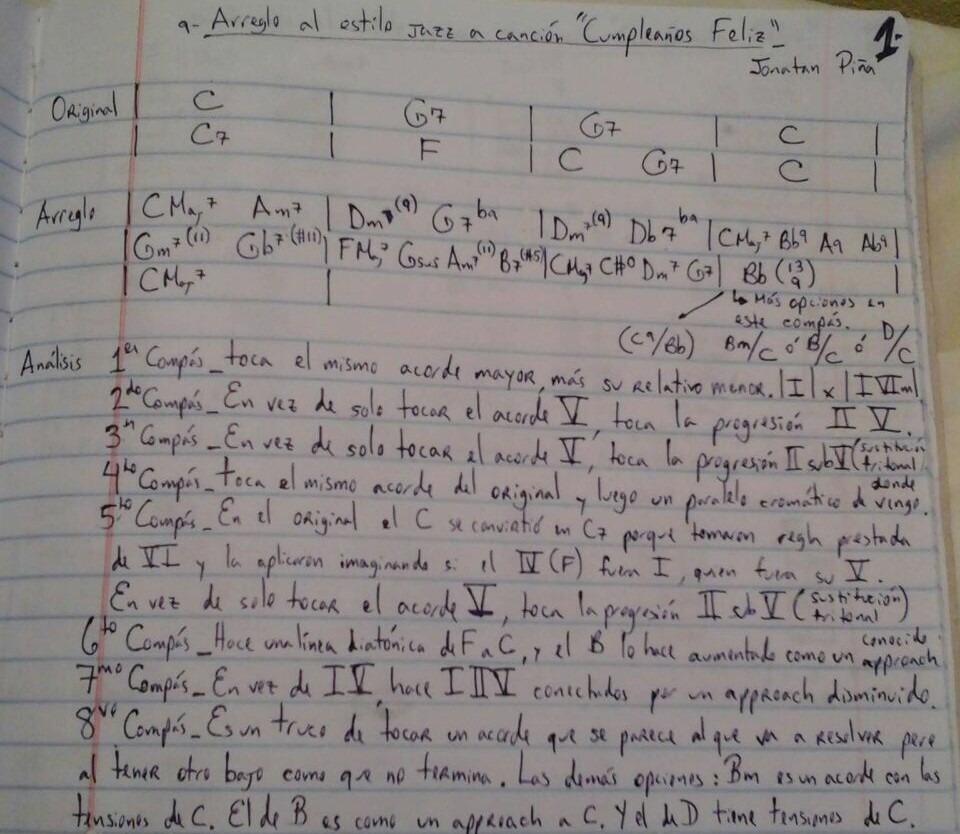 9- Arreglo al estilo Jazz a canción "Cumpleaños Feliz" 1-
Jonatan Piña
Original | C | G7 | G7 | C |
C7 | F | C G7 | C |
Arreglo | CMaj7 Am7 | Dm7(9) G7b9 | Dm7(9) Db7b9 | CMaj7 Bb9 A9 Ab9 |
| Gm7(11) Gb7(#11) | FMaj7 Gsus Am7(11) B7(#5) | CMaj7 C#º Dm7 G7 | Bb (13 9) |
| CMaj7 |
↳ Más opciones en
este compás.
(C9/Bb) Bm/C ó B/C ó D/C
Análisis 1er Compás_ toca el mismo acorde mayor, más su relativo menor. |I| x |I VIm|
2do Compás_ En vez de solo tocar el acorde V, toca la progresión II V.
3er Compás_ En vez de solo tocar el acorde V, toca la progresión II subV (sustitución tritonal)
4to Compás_ toca el mismo acorde del original y luego un paralelo cromático de donde vengo.
5to Compás_ En el original el C se convirtió en C7 porque tomaron regla prestada
de VI y la aplicaron imaginando si el IV (F) fuera I, quien fuera su V.
En vez de solo tocar el acorde V, toca la progresión II subV (sustitución tritonal)
6to Compás_ Hace una línea diatónica de F a C, y el B lo hace aumentado como un conocido approach
7mo Compás_ En vez de I V, hace I II V conectados por un approach disminuido.
8vo Compás_ Es un truco de tocar un acorde que se parece al que va a resolver pero
al tener otro bajo como que no termina. Las demás opciones: Bm es un acorde con las
tensiones de C. El de B es como un approach a C. Y el de D tiene tensiones de C.